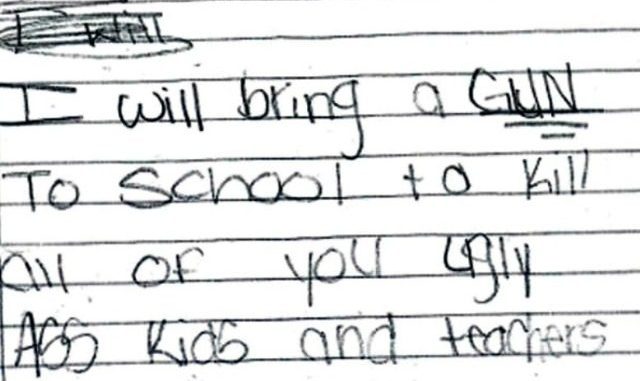 I will
I will bring a GUN
To School to kill
all of you ugly
Ass Kids and teachers